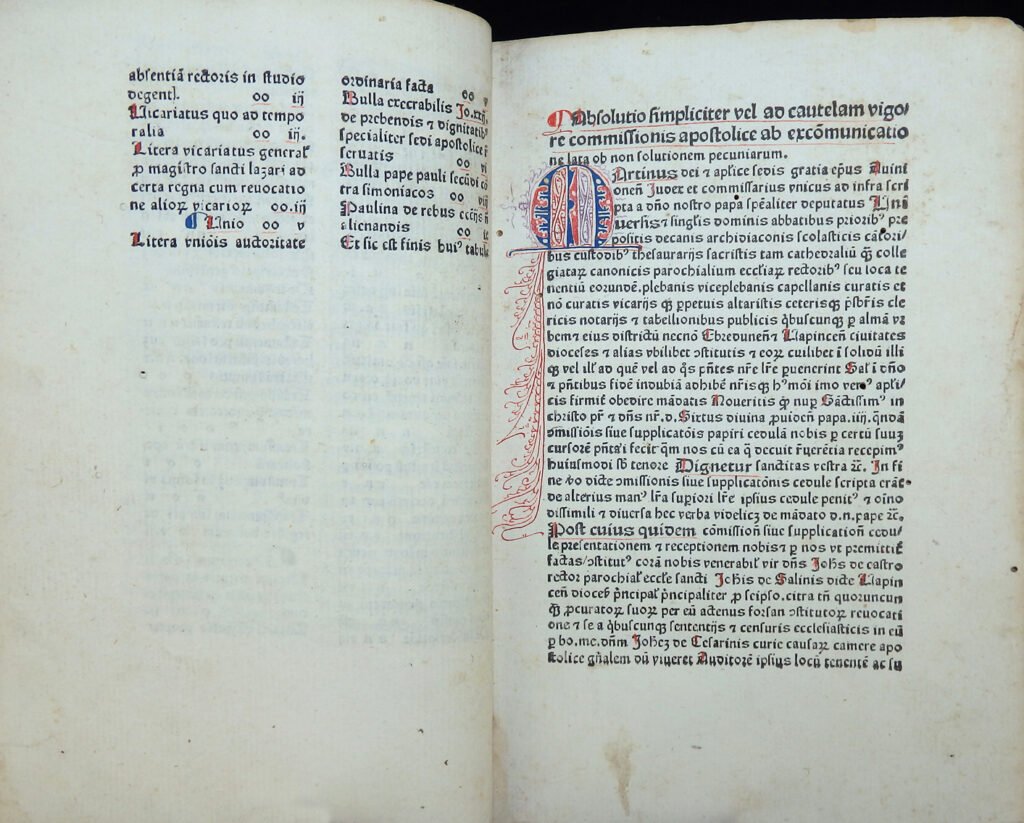 absentiā rectoris in studio
degentꝭ. oo iij
Vicariatus quo ad tempo
ralia oo iij.
Litera vicariatus generaꝭ
ꝑ magistro sancti lazari ad
certa regna cum reuocatio
ne alioꝝ vicarioꝝ oo.iij
Unio oo v
Litera vniōis auctoritate
ordinaria facta oo v
Bulla execrabilis Jo.xxij.
de prebendis ⁊ dignitatibꝰ
specialiter sedi apostolice
seruatis oo vi
Bulla pape pauli secūdi cō
tra simoniacos oo
Paulina de rebus eccījs
alienandis oo
Et sic est finis huiꝰ tabule
Absolutio simpliciter vel ad cautelam vigo/
re commissionis apostolice ab excōmunicatio
ne lata ob non solutionem pecuniarum.
Martinus dei ⁊ aplīce sedis gratia epūs Auini
onēn̄ Judex et commissarius vnicus ad infra scri
pta a dn̄o nostro papa spēaliter deputatus Uni
uersis ⁊ singlīs dominis abbatibus prioribꝰ pre
positis decanis archidiaconis scolasticis cātori/
bus custodibꝰ thesaurarijs sacristis tam cathedraliū ꝙ̄ colle
giataꝝ canonicis parochialium eccliaꝝ rectoribꝰ seu loca te
nentiū eorundē.plebanis viceplebanis capellanis curatis et
nō curatis vicarijs ꝙ̄ ꝑpetuis altaristis ceterisqꝫ p̄sbrīs cle
ricis notarijs ⁊ tabellionibus publicis q̄buscunqꝫ ꝑ almā vr
bem ⁊ eius districtū necnō Ebredunēn̄ ⁊ Uapincēn̄ ciuitates
dioceses ⁊ alias vbilibet ꝯstitutis ⁊ eoꝝ cuilibet ī solidū illi
qꝫ vel illꝭ ad quē vel ad q̄s pn̄tes nr̄e lr̄e puenerint Saꝉ ī dn̄o
⁊ pn̄tibus fidē indubiā adhibē nr̄isqꝫ hꝰmōi imo verꝰ apli/
cis firmiẽ obedire mādatis Noueritis ꝙ̄ nuꝑ Sāctissimꝰ in
christo pr̄ ⁊ dn̄s nr̄.d. Sixtus diuina ꝓuidēn̄ papa.iiij.qn̄dā
ꝯmissiōis siue supplicatōis papiri cedulā nobis ꝑ certū suuꝫ
cursorē pn̄taꝛi fecit qm̄ nos cū ea q̄ decuit r̄uerētia recepimꝰ
huiusmodi sb̄ tenore Dignetur sanctitas vestra ⁊c̄. In fi
ne ꝟo dicte ꝯmissionis siue supplicatōnis cedule scripta erāt
de alterius manꝰ lr̄a supiori lr̄e ipsius cedule penitꝰ ⁊ oīno
dissimili ⁊ diuersa hec verba videlicꝫ de mādato d.n.pape ⁊c̄.
Post cuius quidem cōmissiōn̄ siue supplicatiōn̄ cedu/
le presentationem ⁊ receptionem nobis⁊ ꝑ nos vt premittiẽ
factas/ꝯstitutꝰ corā nobis venerabiꝉ vir dn̄s Joh̄s de castro
rector parochiaꝉ eccl̄e sancti Joh̄is de Salinis dicte Uapin
cēn̄ dioceꝭ p̄ncipaꝉ p̄ncipaliter ꝓ seipso.citra tn̄ quoruncun
qꝫ ꝓcuratoꝝ suoꝝ per eū actenus forsan ꝯstitutoꝝ reuocati
one ⁊ se a q̄buscunqꝫ sententijs ⁊ censuris ecclesiasticis in eū
ꝑ bo.me.dn̄m Joh̄eꝫ de Cesarinis curie causaꝝ camere apo
stolice gn̄alem dū viueret Auditorē ipsius locū tenentē ac su